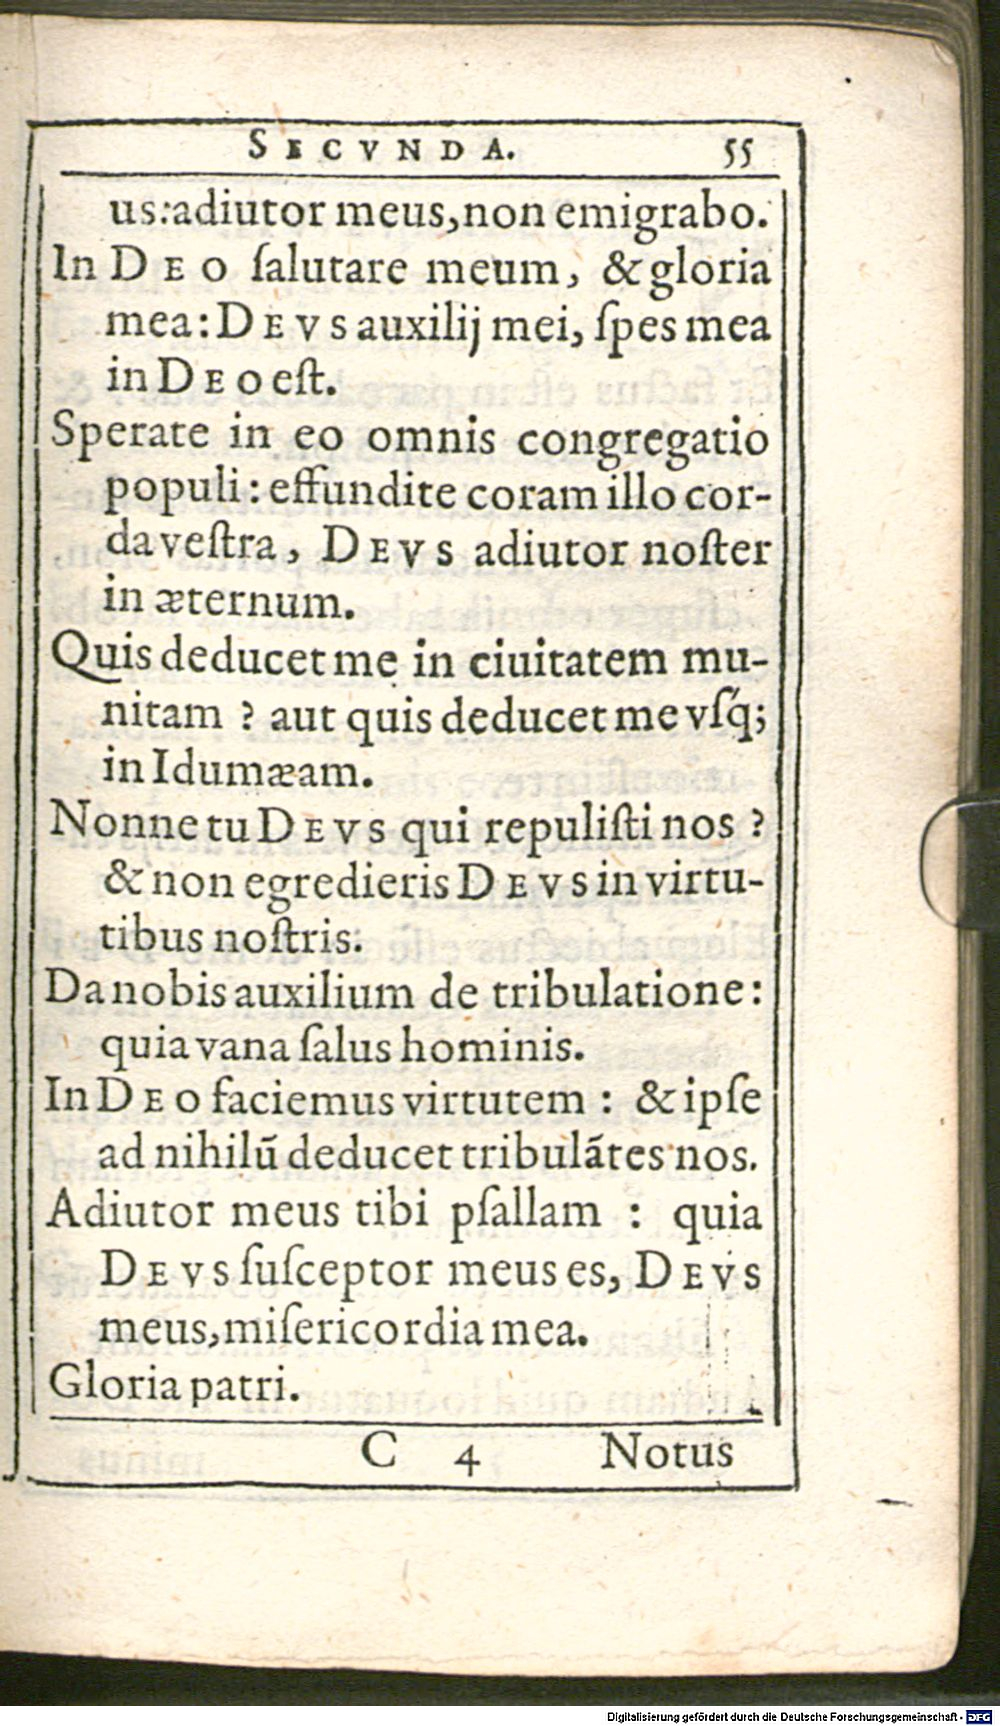 SECVNDA. 55
us:adiutor meus, non emigrabo.
In DEO ſalutare meum, & gloria
mea: DEVS auxilij mei, ſpes mea
in DEO eſt.
Sperate in eo omnis congregatio
populi: effundite coram illo cor-
da veſtra, DEVS adiutor noſter
in æternum.
Quis deducet me in ciuitatem mu-
nitam ? aut quis deducet me vſq́;
in Idumæam.
Nonne tu DEVS qui repuliſti nos ?
& non egredieris DEVS in virtu-
tibus noſtris.
Da nobis auxilium de tribulatione:
quia vana ſalus hominis.
In DEO faciemus virtutem : & ipſe
ad nihilũ deducet tribulãtes nos.
Adiutor meus tibi pſallam : quia
DEVS ſuſceptor meus es, DEVS
meus, miſericordia mea.
Gloria patri.
C 4 Notus
Digitalisierung gefördert durch die Deutsche Forschungsgemeinschaft - DFG